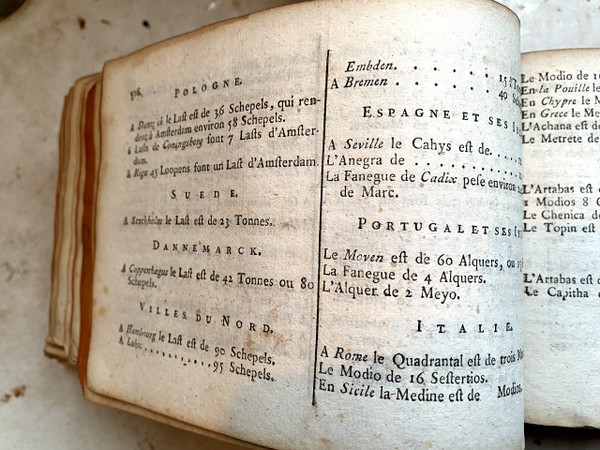 POLOGNE.
A Dantzick le Last est de 36 Schepels, qui ren-
dent à Amsterdam environ 58 Schepels.
6 Lasts de Coningsberg font 7 Lasts d'Amster-
dam.
A Riga 45 Loopens font un Last d'Amsterdam.
SUEDE.
A Stockholm le Last est de 23 Tonnes.
DANNEMARCK.
A Coppenhague le Last est de 42 Tonnes ou 80
Schepels.
VILLES DU NORD.
A Hambourg le Last est de 90 Schepels.
A Lubec...........95 Schepels.
Embden. . . . . . . 15
A Bremen . . . . . . 40
ESPAGNE ET SES
A Seville le Cahys est de. . . .
L'Anegra de . . . . . . . . .
La Fanegue de Cadix pese environ
de Marc.
PORTUGAL ET SES
Le Moyen est de 60 Alquers, ou
La Fanegue de 4 Alquers.
L'Alquer de 2 Meyo.
ITALIE.
A Rome le Quadrantal est de trois
Le Modio de 16 Sestertios.
En Sicile la Medine est de Modios
Le Modio de
En la Pouille le
En Chypre le M
En Grece le Me
L'Achana est de
Le Metrete de
L'Artabas est d
1 Modios 8 C
Le Chenica de
Le Topin est
L'Artabas est d
Le Capitha